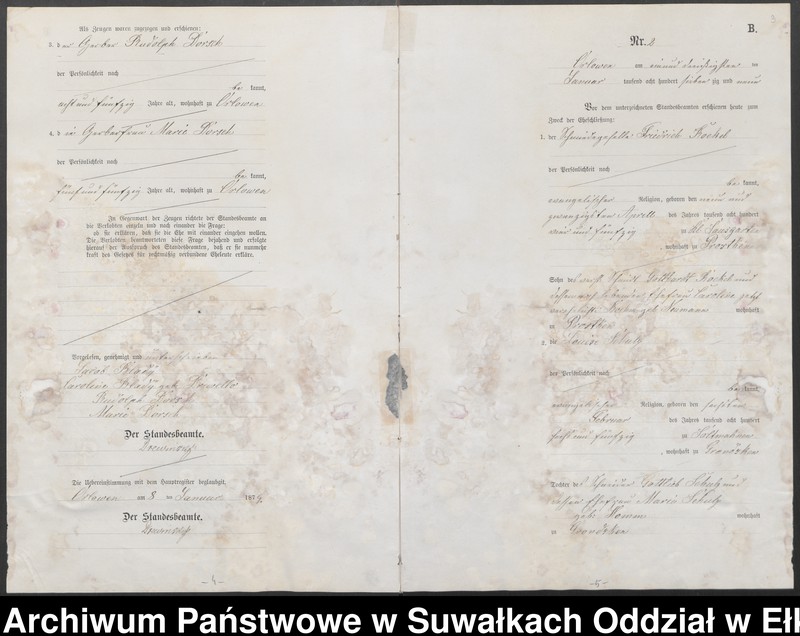 Als Zeugen waren zugezogen und erschienen:
3. der Gerber Rudolph Dorsch
der Persönlichkeit nach
be kannt,
acht und fünfzig Jahre alt, wohnhaft zu Orlowen
4. die Gerberfrau Marie Dorsch
der Persönlichkeit nach
be kannt,
fünf und fünfzig Jahre alt, wohnhaft zu Orlowen
In Gegenwart der Zeugen richtete der Standesbeamte an
die Verlobten einzeln und nach einander die Frage:
ob sie erklären, daß sie die Ehe mit einander eingehen wollen.
Die Verlobten beantworteten diese Frage bejahend und erfolgte
hierauf der Ausspruch des Standesbeamten, daß er sie nunmehr
kraft des Gesetzes für rechtmäßig verbundene Eheleute erkläre.
Vorgelesen, genehmigt und unterschrieben
Jacob
Caroline geb.
Rudolph Dorsch
Marie Dorsch
Der Standesbeamte.
Die Uebereinstimmung mit dem Hauptregister beglaubigt.
Orlowen am 8 ten Januar 1879.
Der Standesbeamte.
- 4 -
3
B.
Nr. 2
Orlowen am ein und dreißigsten ten
Januar tausend acht hundert sieben zig und neun
Vor dem unterzeichneten Standesbeamten erschienen heute zum
Zweck der Eheschließung:
1. der Schmiedegeselle Friedrich
der Persönlichkeit nach
be kannt,
evangelischer Religion, geboren den neun und
zwanzigsten April des Jahres tausend acht hundert
und fünfzig zu Kl.
, wohnhaft zu Prostken
Sohn des Gotthardt und
dessen Ehefrau Caroline jetzt
geb. Neumann wohnhaft
zu Prostken
2. die Louise Schulz
der Persönlichkeit nach
be kannt,
evangelischer Religion, geboren den sechsten
Februar des Jahres tausend acht hundert
sechs und fünfzig zu Soltmahnen
, wohnhaft zu Gronsken
Tochter des Schneider Gottlieb Schulz und
dessen Ehefrau Marie Schulz
geb. wohnhaft
zu Gronsken
- 5 -
Archiwum Państwowe w Suwałkach Oddział w Ełk